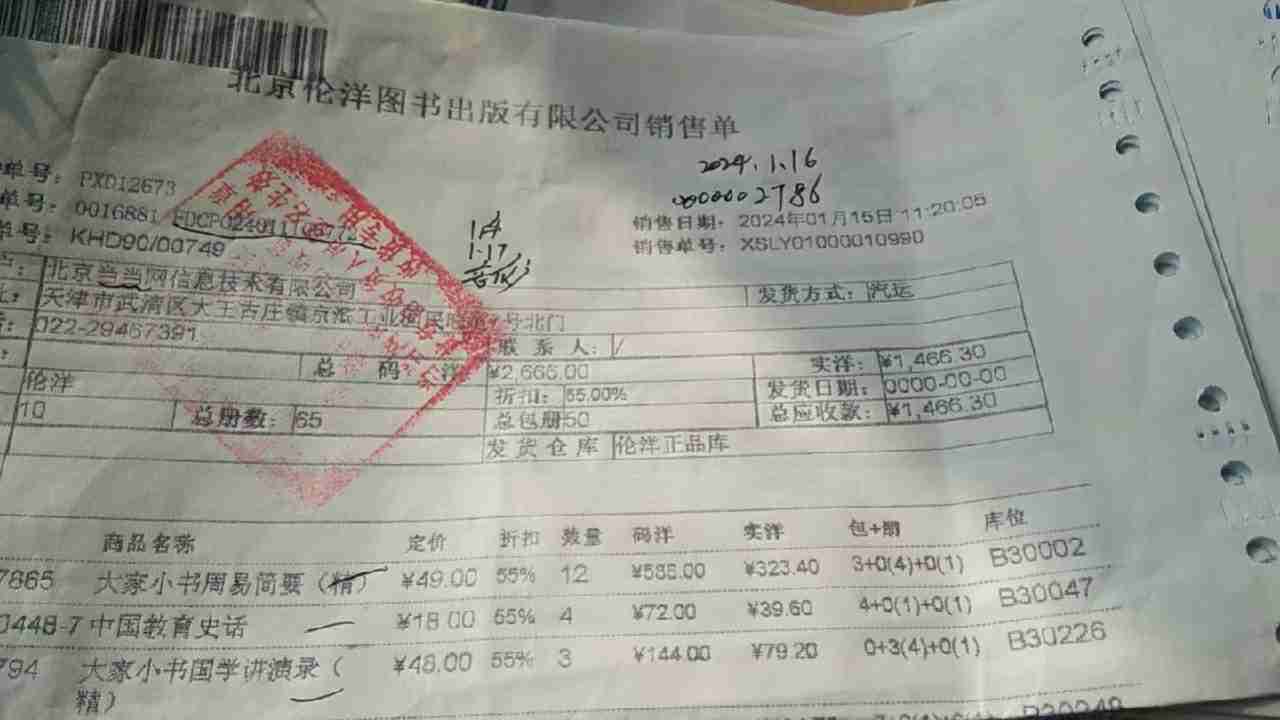 北京伦洋图书出版有限公司销售单
2024.1.16
0000002786
单号: PXD12673
单号: 0016881
单号: KHD90/00749
1件
1.17
销售日期: 2024年01月15日 11:20:05
销售单号: XSLY01000010990
北京当当网信息技术有限公司 发货方式: 汽运
天津市武清区大王古庄镇京滨工业园民 号北门
022-29467391 联系人: /
总码洋 ¥2,666.00 实洋: ¥1,466.30
伦洋 折扣: 55.00% 发货日期: 0000-00-00
10 总册数: 65 总包册50 总应收款: ¥1,466.30
发货仓库 伦洋正品库
商品名称 定价 折扣 数量 码洋 实洋 包+册 库位
7865 大家小书周易简要(精) ¥49.00 55% 12 ¥588.00 ¥323.40 3+0(4)+0(1) B30002
0448-7 中国教育史话 ¥18.00 55% 4 ¥72.00 ¥39.60 4+0(1)+0(1) B30047
794 大家小书国学讲演录( ¥48.00 55% 3 ¥144.00 ¥79.20 0+3(4)+0(1) B30226
精)